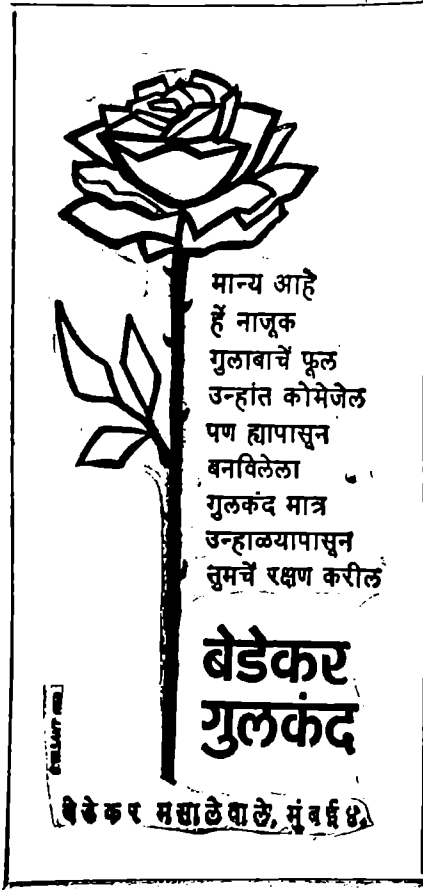 मान्य आहे
हें नाजूक
गुलाबाचें फूल
उन्हांत कोमेजेल
पण ह्यापासून
बनविलेला
गुलकंद मात्र
उन्हाळयापासून
तुमचें रक्षण करील
बेडेकर
गुलकंद
बेडेकर मसालेवाले, मुंबई ४.